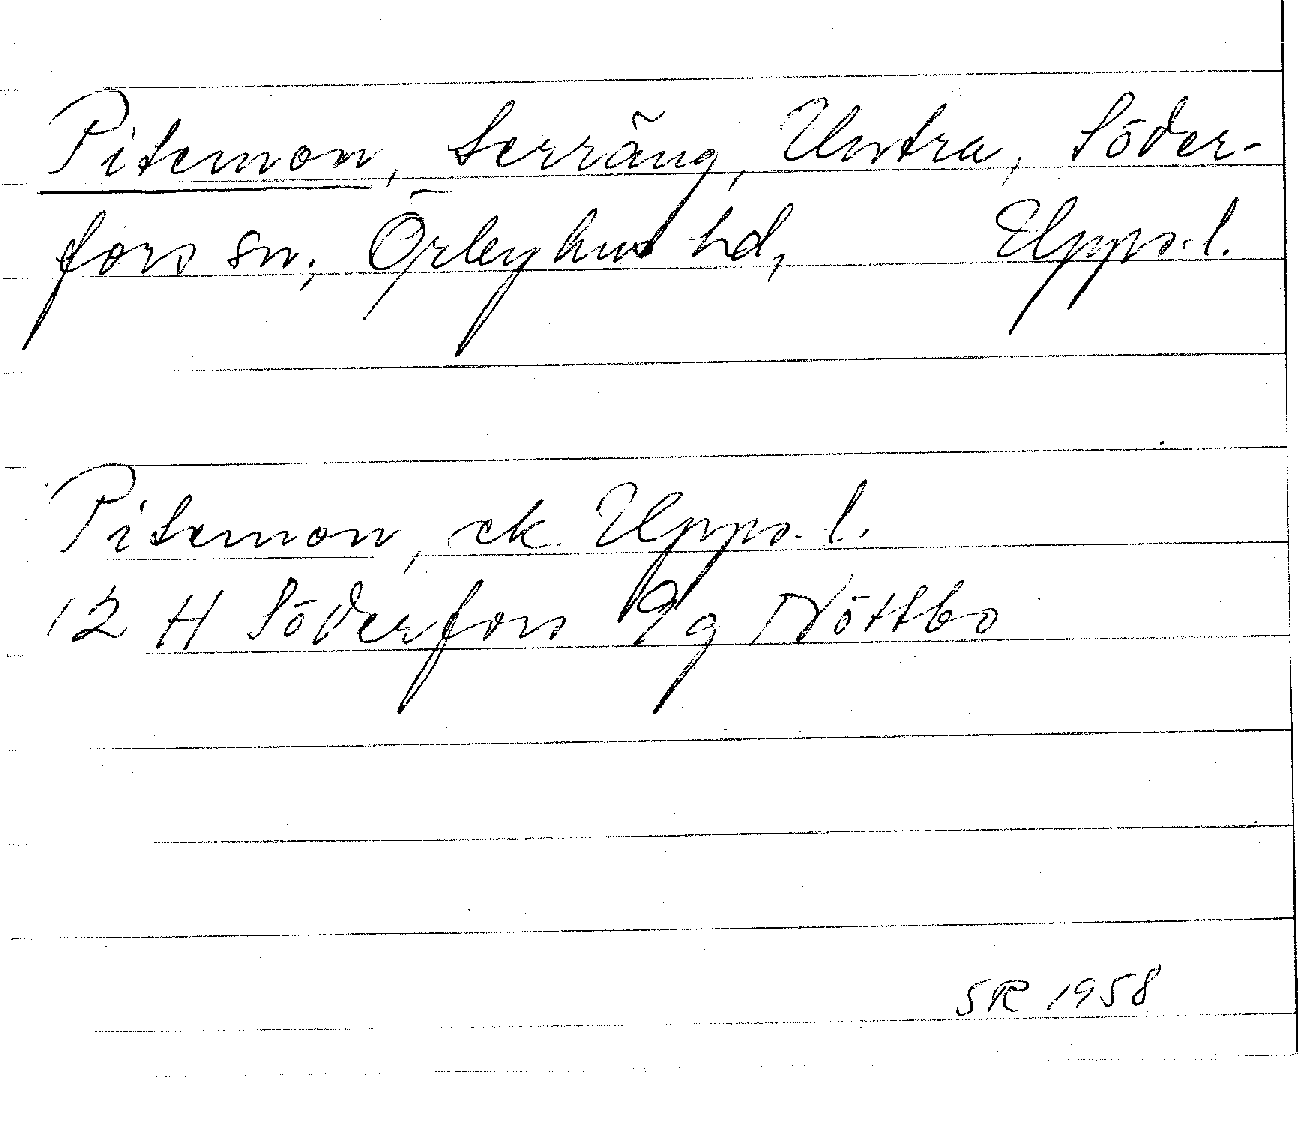 Pitemon, terräng, Untra, Söder-
fors sn, Örbyhus hd, Upps.l.
Pitemon, ek. Upps. l.
12 H Söderfors 9g Nöttbo
SR 1958